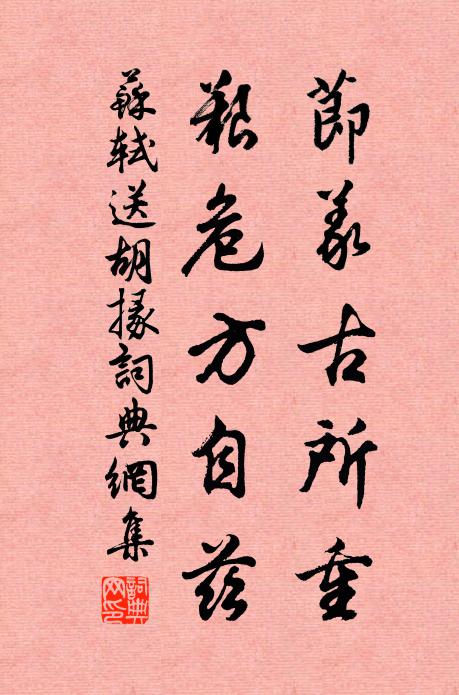 節義古所重
艱危方自茲
蘇軾送胡掾詞典網集
詞典網印